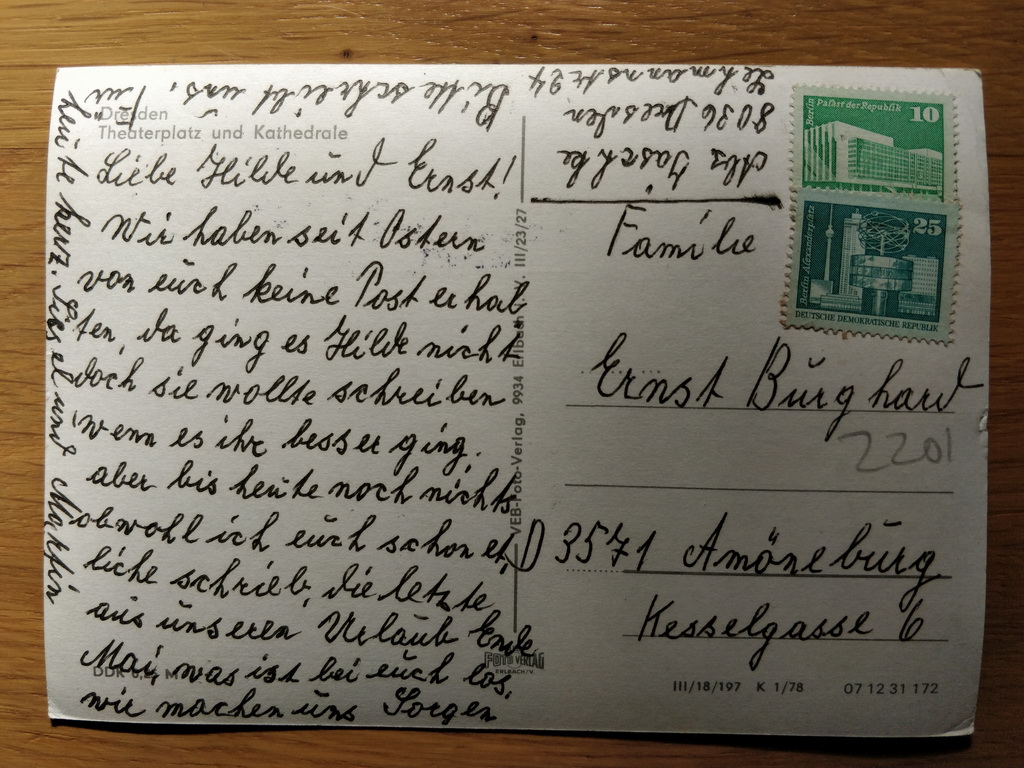 Dresden
Theaterplatz und Kathedrale
Liebe Hilde und Ernst!
Wir haben seit Ostern
von euch keine Post erhal
ten, da ging es Hilde nicht
doch sie wollte schreiben
wenn es ihr besser ging.
aber bis heute noch nichts
obwohl ich euch schon et,
liche schrieb, die letzte
aus unseren Urlaub Ende
Mai, was ist bei euch los,
wir machen uns Sorgen
Bitte schreibt uns. Für
heute herz. Liesel und Martin
VEB Foto-Verlag, 9934 Erlbach III/23/27
FOTO VERLAG
ERLBACH/V.
DDK
Abs Jaschke
8036 Dresden
Lehmannstr 24
Berlin Palast der Republik
10
Berlin Alexanderplatz
25
DEUTSCHE DEMOKRATISCHE REPUBLIK
Familie
Ernst Burghard
2201
D 3571 Amöneburg
Kesselgasse 6
III/18/197 K 1/78 07 12 31 172